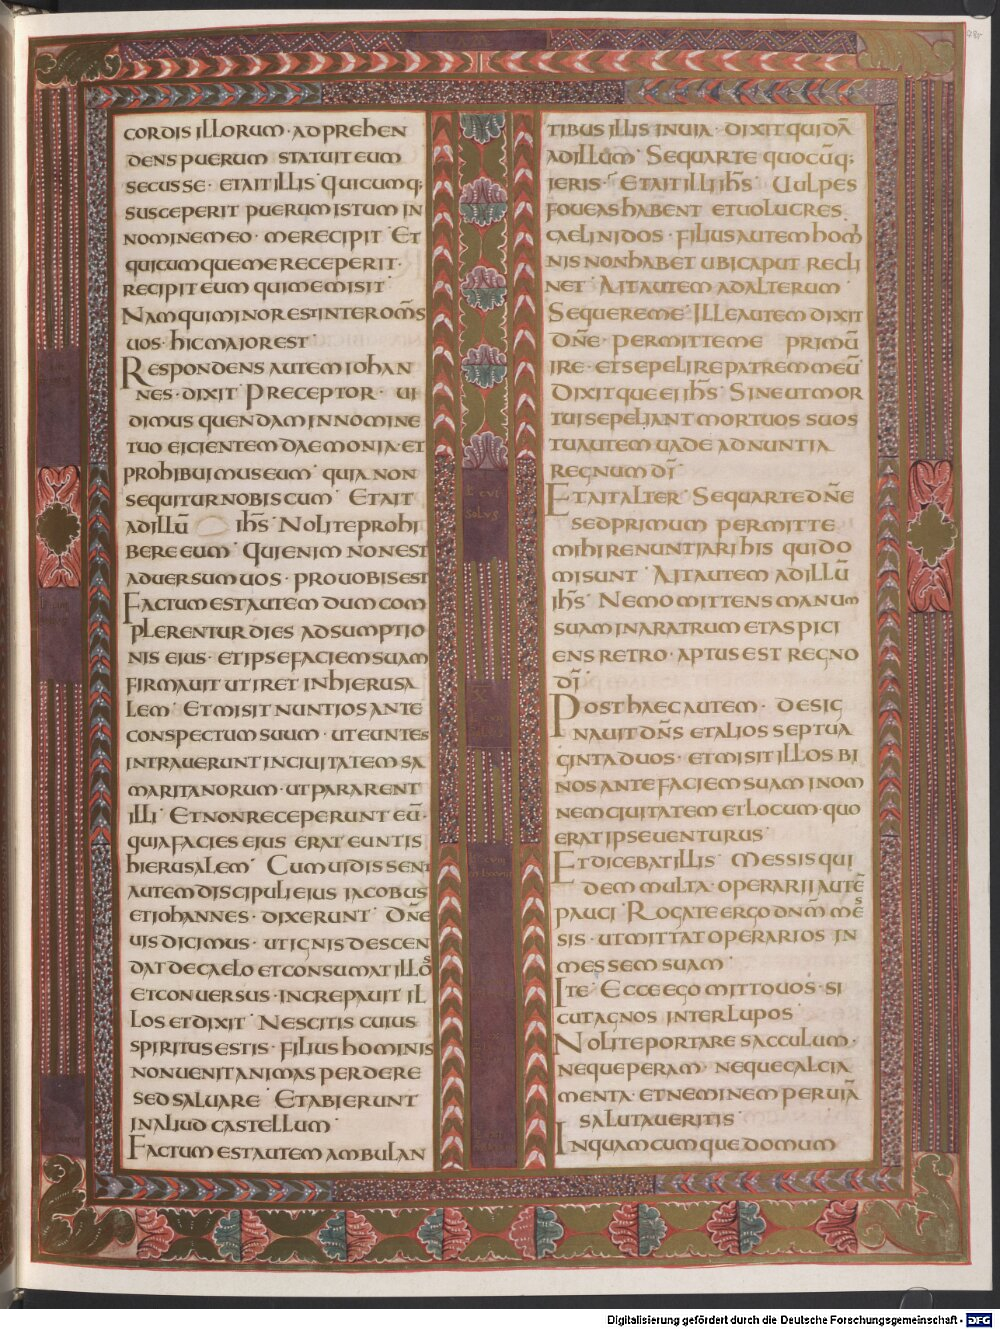 CORDIS ILLORUM · ADPREHEN
DENS PUERUM STATUIT EUM
SECUS SE · ET AIT ILLIS · QUICUMQ;
SUSCEPERIT PUERUM ISTUM IN
NOMINE MEO · ME RECIPIT · ET
QUICUMQUE ME RECEPERIT ·
RECIPIT EUM QUI ME MISIT ·
NAM QUI MINOR EST INTER OM̅S
UOS · HIC MAIOR EST ·
RESPONDENS AUTEM IOHAN
NES · DIXIT · PRECEPTOR · UI
DIMUS QUENDAM IN NOMINE
TUO EICIENTEM DAEMONIA · ET
PROHIBUIMUS EUM · QUIA NON
SEQUITUR NOBISCUM · ET AIT
AD ILLŪ IH̅S · NOLITE PROHI
BERE EUM · QUI ENIM NON EST
ADUERSUM UOS · PRO UOBIS EST
FACTUM EST AUTEM DUM COM
PLERENTUR DIES ADSUMPTIO
NIS EIUS · ET IPSE FACIEM SUAM
FIRMAUIT UT IRET IN HIERUSA
LEM · ET MISIT NUNTIOS ANTE
CONSPECTUM SUUM · UT EUNTES
INTRAUERUNT IN CIUITATEM SA
MARITANORUM · UT PARARENT
ILLI · ET NON RECEPERUNT EŪ ·
QUIA FACIES EIUS ERAT EUNTIS
HIERUSALEM · CUM UIDISSENT
AUTEM DISCIPULI EIUS IACOBUS
ET IOHANNES · DIXERUNT · DN̅E
UIS DICIMUS · UT IGNIS DESCEN
DAT DE CAELO ET CONSUMAT ILLOS
ET CONUERSUS · INCREPAUIT IL
LOS ET DIXIT · NESCITIS CUIUS
SPIRITUS ESTIS · FILIUS HOMINIS
NON UENIT ANIMAS PERDERE
SED SALUARE · ET ABIERUNT
IN ALIUD CASTELLUM ·
FACTUM EST AUTEM AMBULAN
TIBUS ILLIS IN UIA · DIXIT QUIDĀ
AD ILLUM · SEQUAR TE QUOCŪQ;
IERIS · ET AIT ILLI IH̅S · UULPES
FOUEAS HABENT ET UOLUCRES
CAELI NIDOS · FILIUS AUTEM HOMI
NIS NON HABET UBI CAPUT RECLI
NET · AIT AUTEM AD ALTERUM ·
SEQUERE ME · ILLE AUTEM DIXIT
DN̅E · PERMITTE ME PRIMŪ
IRE · ET SEPELIRE PATREM MEŪ ·
DIXITQUE EI IH̅S · SINE UT MOR
TUI SEPELIANT MORTUOS SUOS
TU AUTEM UADE ADNUNTIA
REGNUM DI̅ ·
ET AIT ALTER · SEQUAR TE DN̅E
SED PRIMUM PERMITTE
MIHI RENUNTIARI HIS QUI DO
MI SUNT · AIT AUTEM AD ILLŪ
IH̅S · NEMO MITTENS MANUM
SUAM IN ARATRUM ET ASPICI
ENS RETRO · APTUS EST REGNO
DI̅ ·
POST HAEC AUTEM · DESIG
NAUIT DN̅S ET ALIOS SEPTUA
GINTA DUOS · ET MISIT ILLOS BI
NOS ANTE FACIEM SUAM IN OM
NEM CIUITATEM ET LOCUM · QUO
ERAT IPSE UENTURUS ·
ET DICEBAT ILLIS · MESSIS QUI
DEM MULTA · OPERARII AUTĒ
PAUCI · ROGATE ERGO DN̅M MES
SIS · UT MITTAT OPERARIOS IN
MESSEM SUAM ·
ITE · ECCE EGO MITTO UOS · SI
CUT AGNOS INTER LUPOS ·
NOLITE PORTARE SACCULUM ·
NEQUE PERAM · NEQUE CALCIA
MENTA · ET NEMINEM PER UIĀ
SALUTAUERITIS ·
IN QUAMCUMQUE DOMUM
Digitalisierung gefördert durch die Deutsche Forschungsgemeinschaft - DFG